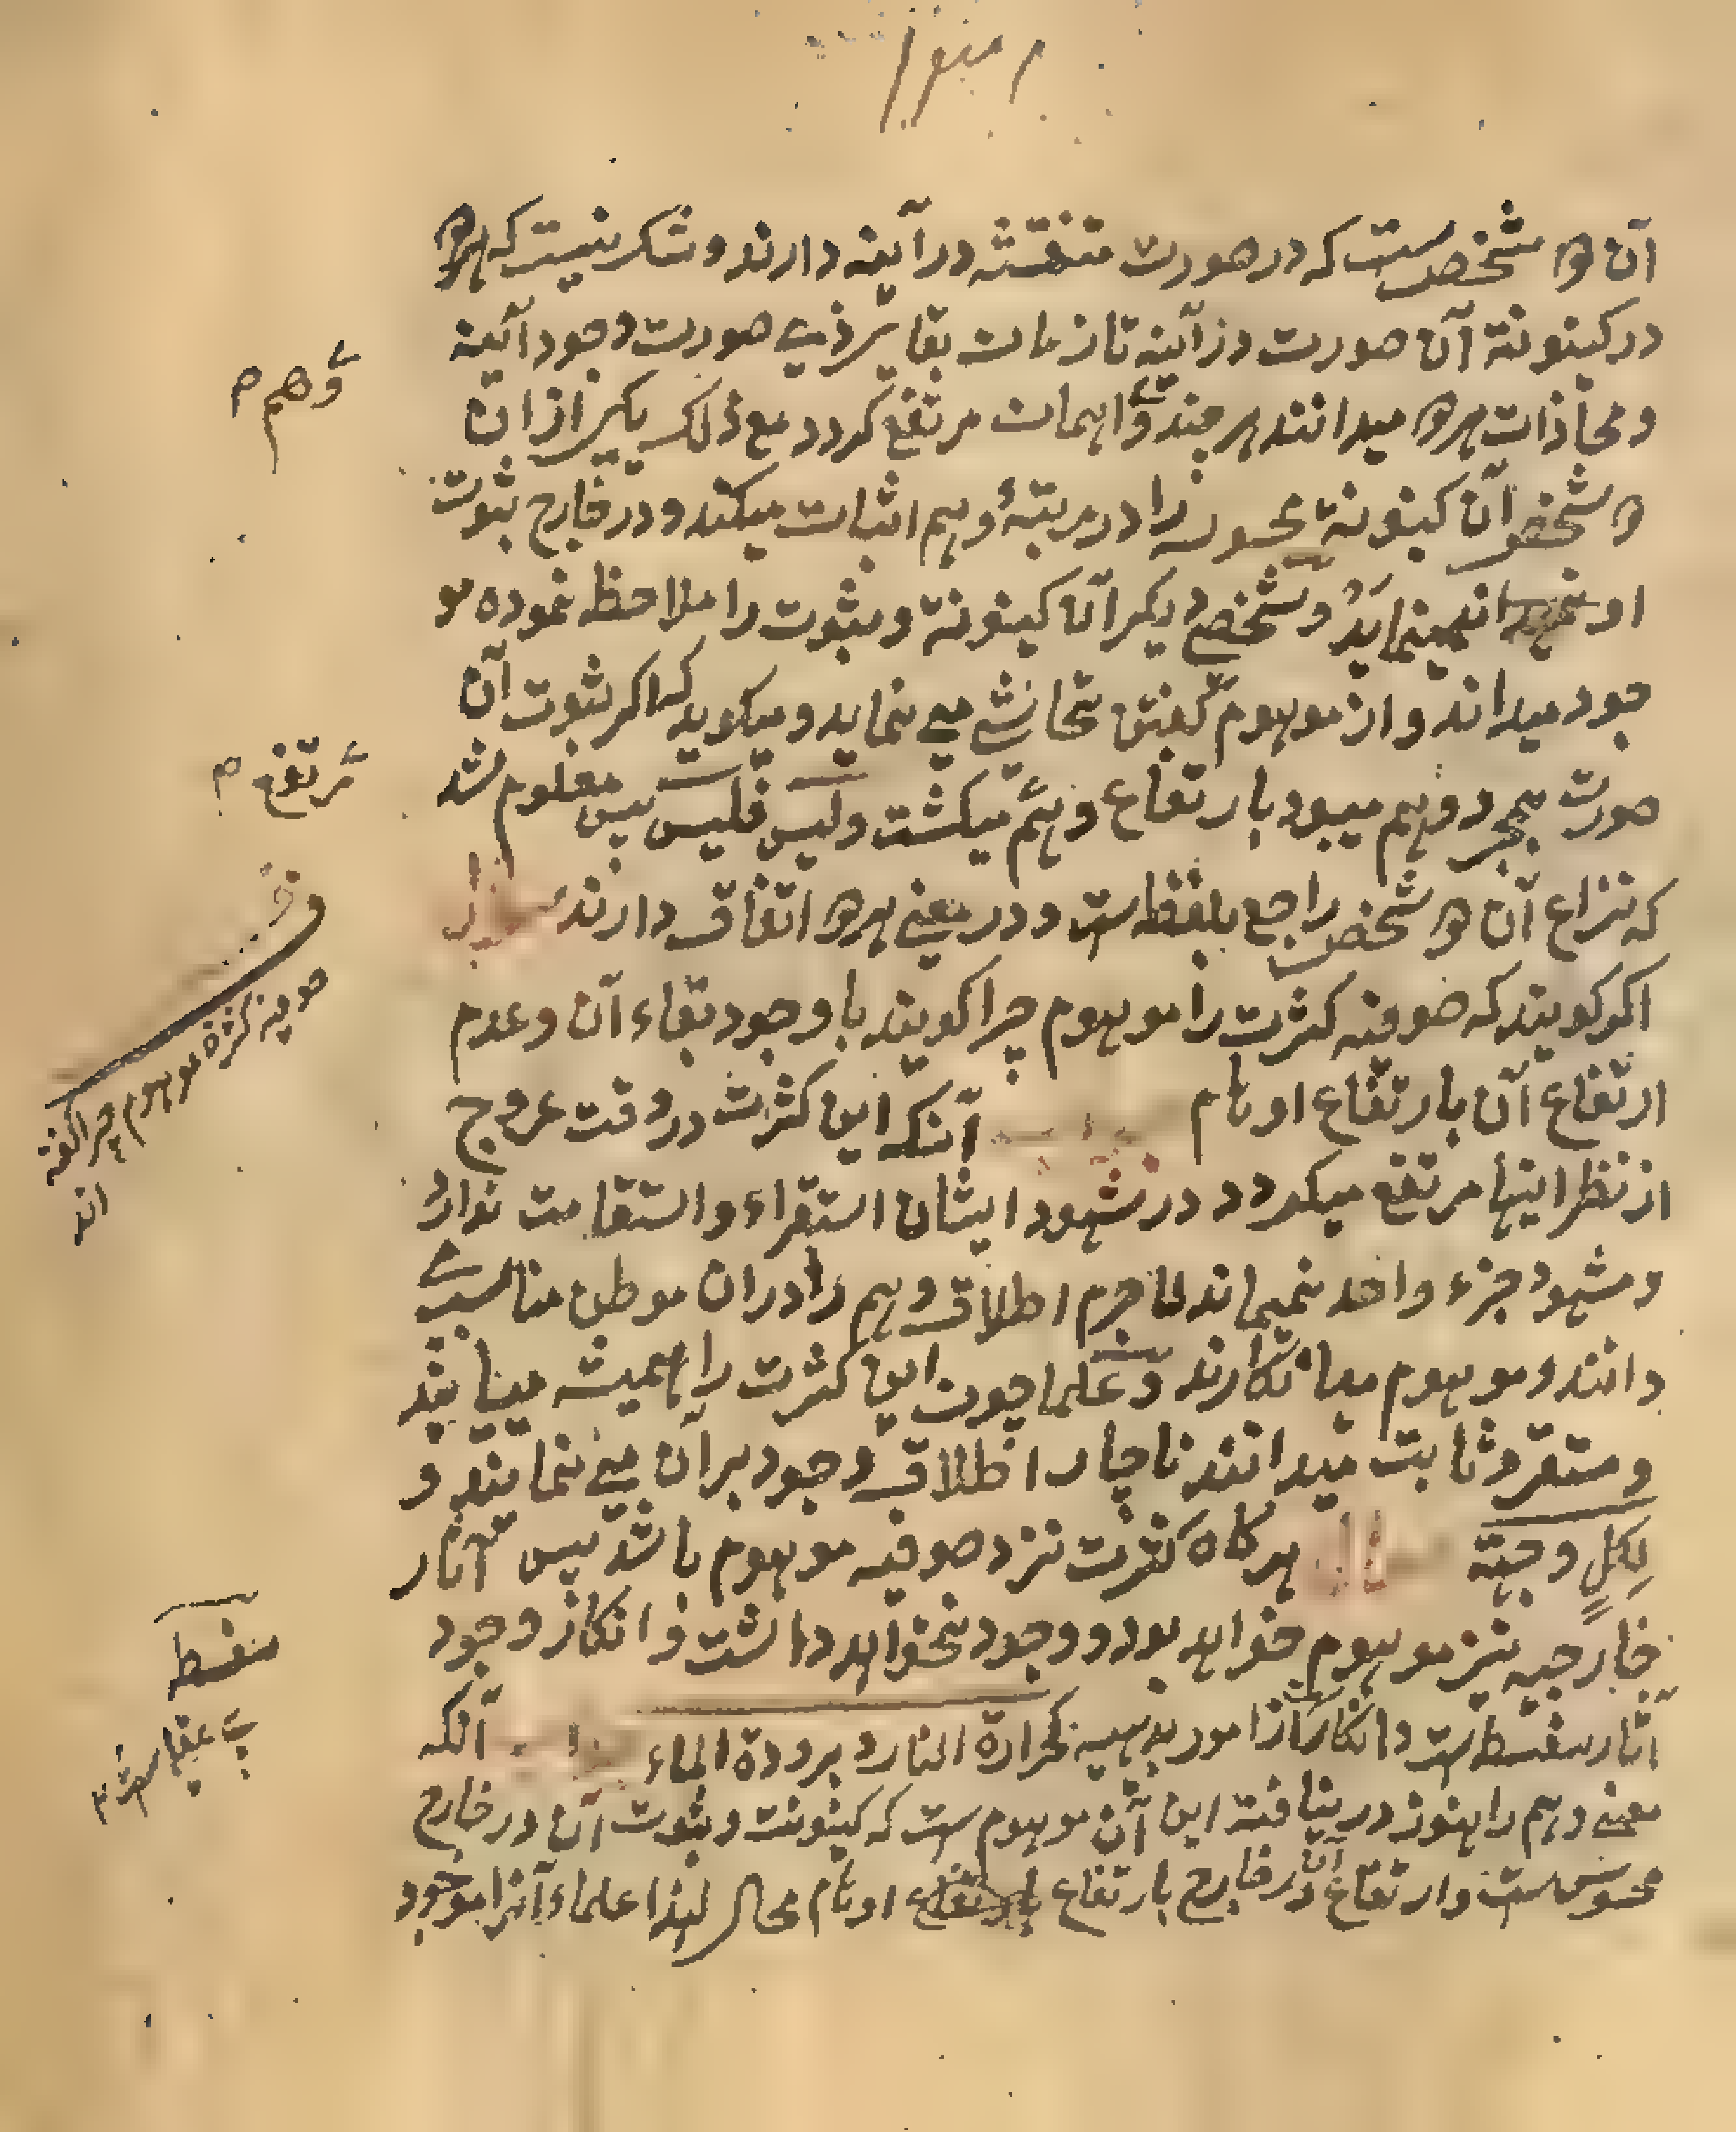 آن دو شخص ست که در صورت منتقشه در آینه دارند و شک نیست که هر دو
در کینونة آن صورت در آینه تا زمان بقای ذی صورت و وجود آئینه
و محاذات هر دو میدانند هر چند واهمات مرتفع کردد مع ذلک یکی از ان
دو شخص آن کینونة محسوسه را در مرتبهٔ وهم اثبات میکند و در خارج ثبوت
او نمینماید و شخصی دیکر آن کینونة و ثبوت را ملاحظه نموده مو
جود میداند و از موهوم کفتن تحاشی می نماید و میکوید که اکر ثبوت آن
صورت بمجرد وهم میبود بارتفاع وهم میکشت و لیس فلیس پس معلوم شد
که نزاع آن دو شخص راجع بلفظ ست و در معنی هر دو اتفاق دارند سوال
اکر کویند که صوفیه کثرت را موهوم چرا کویند با وجود بقاء آن و عدم
ارتفاع آن بارتفاع اوهام آنکه این کثرت در وقت عروج
از نظر اینها مرتفع میکردد در شهود ایشان استقراء و استقامت ندارد
و مشهود جزء واحد نمیماند لاجرم اطلاق وهم را در ان موطن مناسب
دانند و موهوم می انکارند و علما چون این کثرت را همیشه مییابند
و مستقر و ثابت میدانند ناچار اطلاق وجود بر آن می نمایند و
لِکلٍ وجهة هر کاه کثرت نزد صوفیه موهوم باشد پس آثار
خارجیه نیز موهوم خواهد بود و وجود نخواهد داشت و انکار وجود
آثار سفسطه ست و انکار ست از امور بدیهیه کحرارة النار و برودة الماء جواب آنکه
معنی وهم را هنوز در نیافته این آن موهوم ست که کینونت و ثبوت آن در خارج
محسوس ست و ارتفاع آن در خارج بارتفاع اوهام محال لهذا علماء آنرا موجود
وهم م
مرتفع م
صوفیه کثرة موهوم چرا کفته
اند
سفسطه